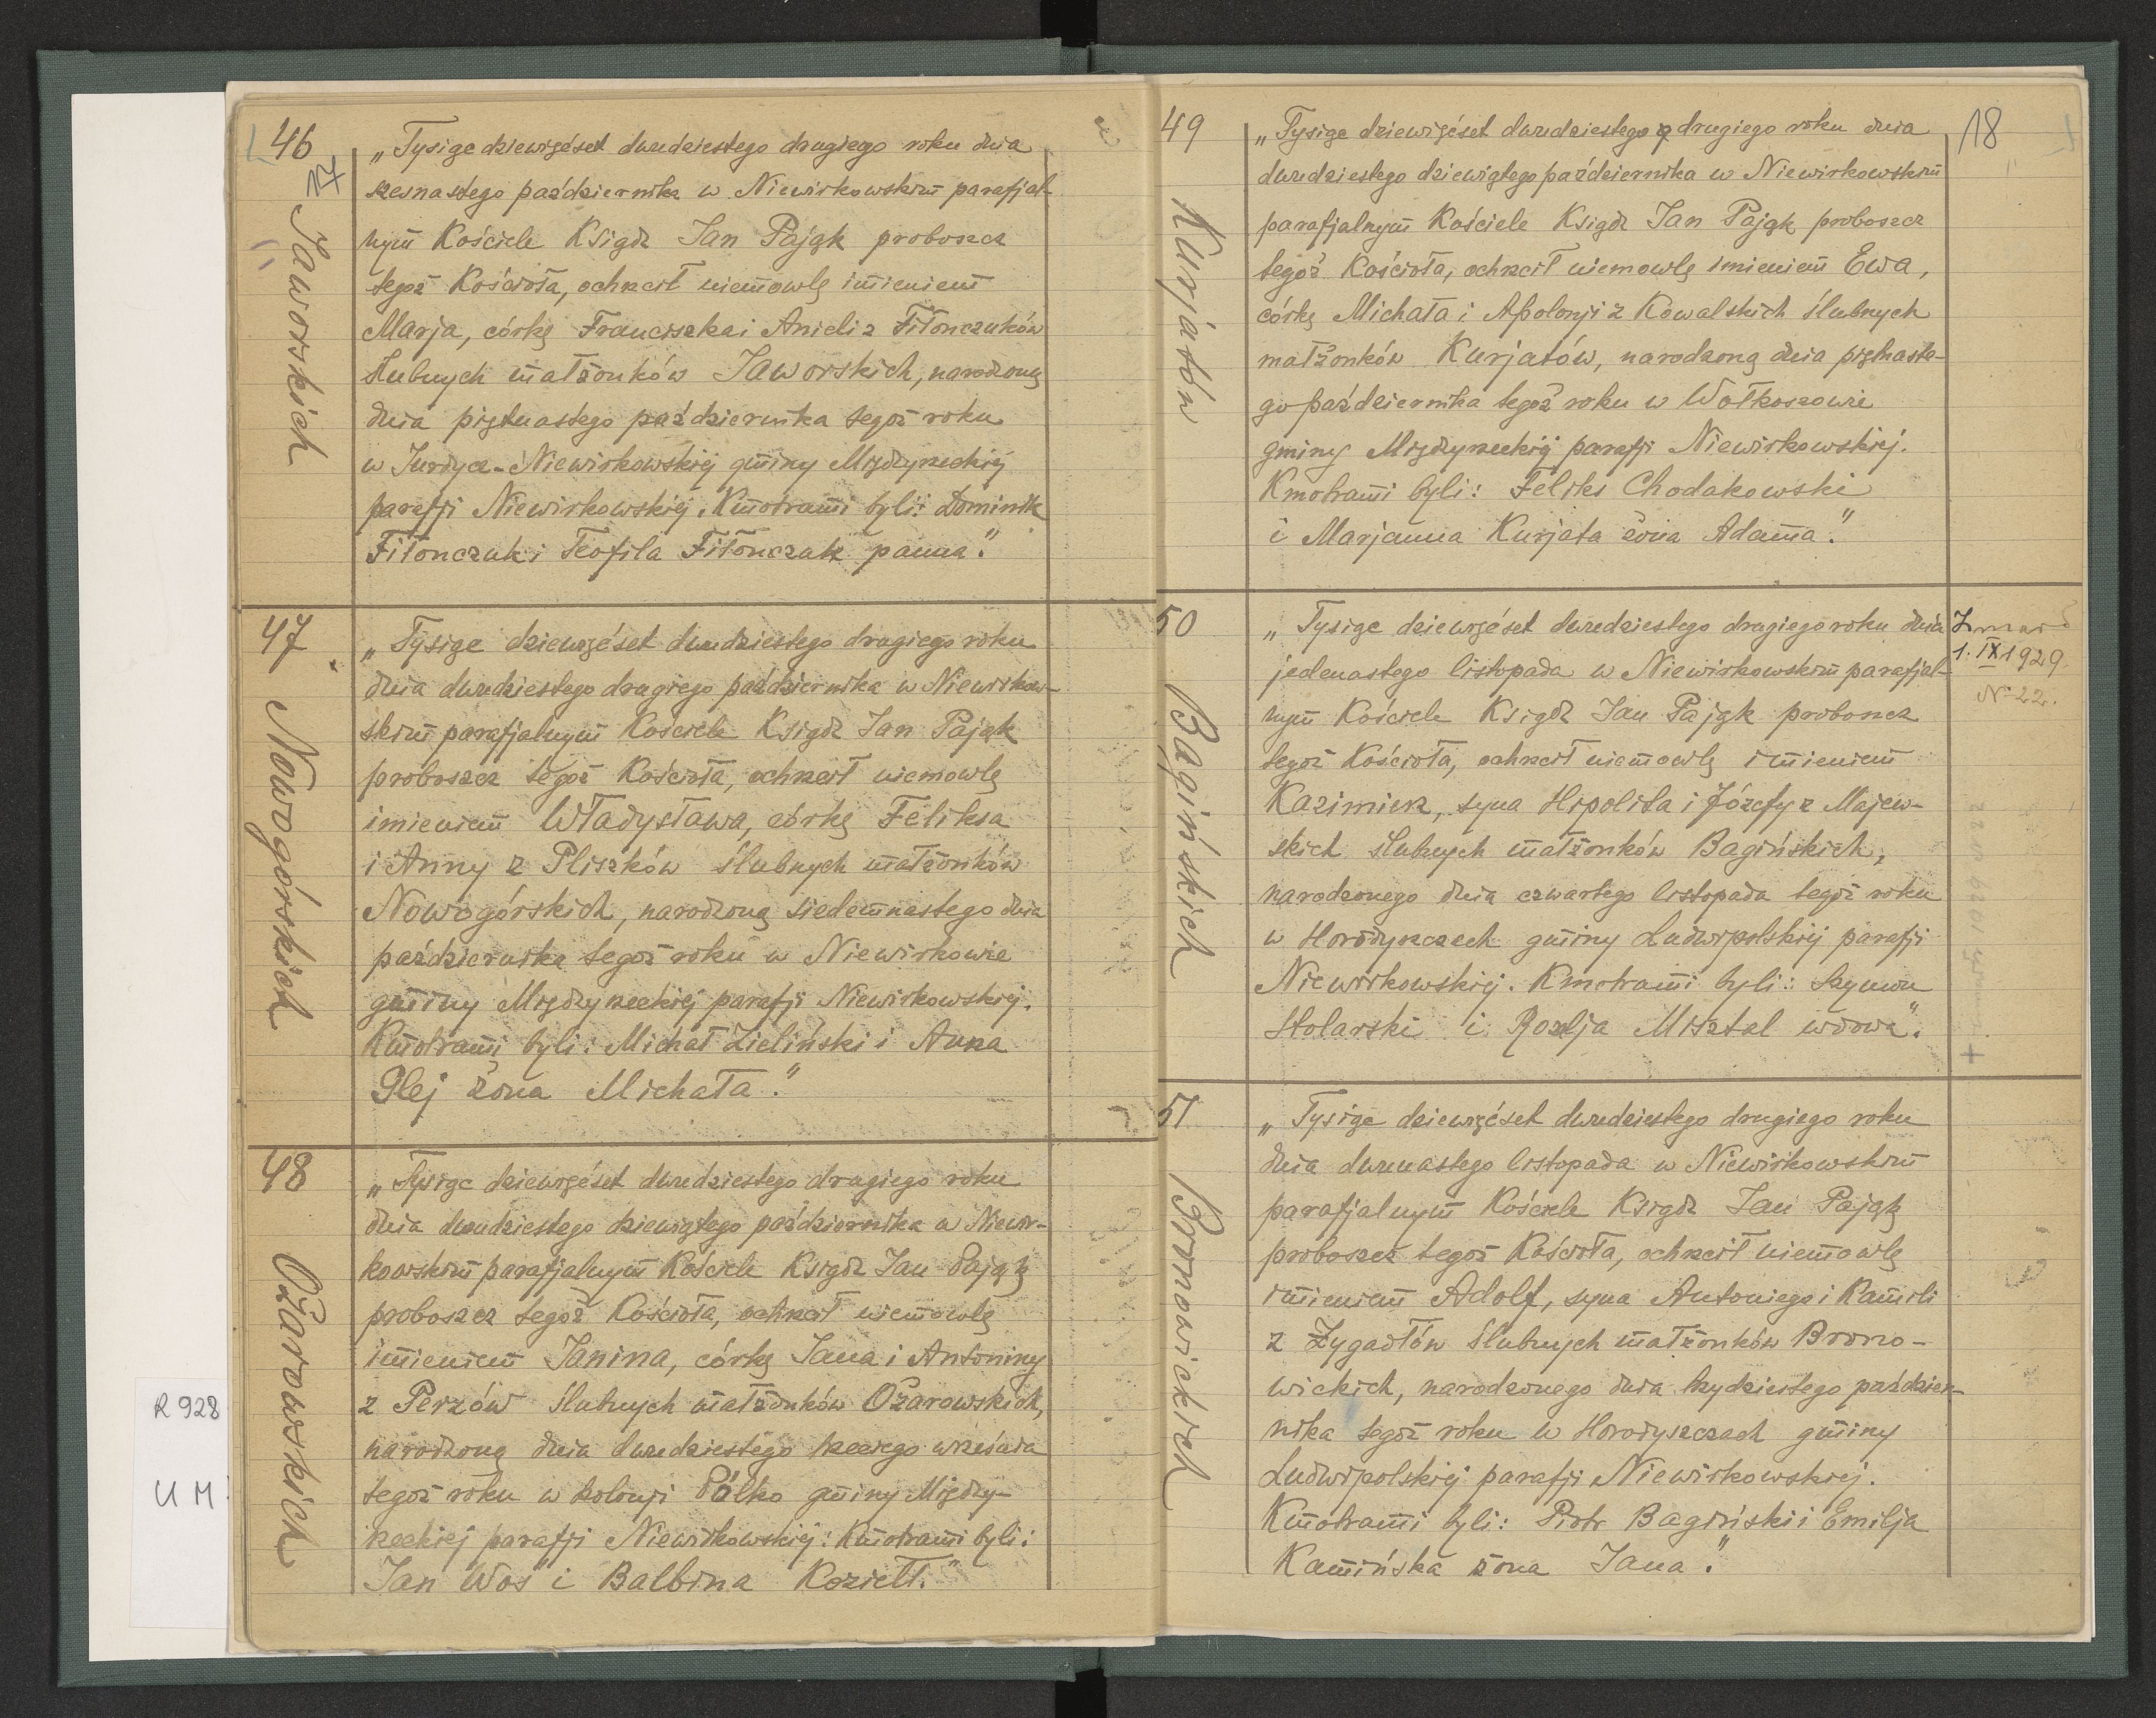 46
17
Jaworskich
„Tysiąc dziewięćset dwudziestego drugiego roku dnia
szesnastego października w Niewirkowskim parafjal-
nym Kościele Ksiądz Jan Pająk proboszcz
tegoż Kościoła, ochrzcił niemowlę imieniem
Marja, córkę Franciszka i Anieli z Fiłonczuków
ślubnych małżonków Jaworskich, narodzoną
dnia piętnastego października tegoż roku
w Juryd­yce-Niewirkowskiej gminy Międzyrzeckiej
parafji Niewirkowskiej. Kmotrami byli: Dominik
Fiłonczuk i Teofila Fiłonczuk panna."
47
Nowogórskich
„Tysiąc dziewięćset dwudziestego drugiego roku
dnia dwudziestego drugiego października w Niewirkow-
skim parafjalnym Kościele Ksiądz Jan Pająk
proboszcz tegoż Kościoła, ochrzcił niemowlę
imieniem Władysława, córkę Feliksa
i Anny z Pliszków ślubnych małżonków
Nowogórskich, narodzoną siedemnastego dnia
października tegoż roku w Niewirkowie
gminy Międzyrzeckiej parafji Niewirkowskiej.
Kmotrami byli: Michał Zieliński i Anna
Plej żona Michała."
48
Ożarowskich
„Tysiąc dziewięćset dwudziestego drugiego roku
dnia dwudziestego dziewiątego października w Niewir-
kowskim parafjalnym Kościele Ksiądz Jan Pająk
proboszcz tegoż Kościoła, ochrzcił niemowlę
imieniem Janina, córkę Jana i Antoniny
z Perzów ślubnych małżonków Ożarowskich,
narodzoną dnia dwudziestego trzeciego września
tegoż roku w kolonji Pólko gminy Między-
rzeckiej parafji Niewirkowskiej: Kmotrami byli:
Jan Woś i Balbina Kozieł."
R 928
U M
49
18
Kurjatów
„Tysiąc dziewięćset dwudziestego drugiego roku dnia
dwudziestego dziewiątego października w Niewirkowskim
parafjalnym Kościele Ksiądz Jan Pająk proboszcz
tegoż Kościoła, ochrzcił niemowlę imieniem Ewa,
córkę Michała i Apolonji z Kowalskich ślubnych
małżonków Kurjatów, narodzoną dnia piętnaste-
go października tegoż roku w Wołkoszowie
gminy Międzyrzeckiej parafji Niewirkowskiej.
Kmotrami byli: Feliks Chodakowski
i Marjanna Kurjata żona Adama."
50
Bagińskich
„Tysiąc dziewięćset dwudziestego drugiego roku dnia
jedenastego listopada w Niewirkowskim parafjal-
nym Kościele Ksiądz Jan Pająk proboszcz
tegoż Kościoła, ochrzcił niemowlę imieniem
Kazimierz, syna Hipolita i Józefy z Majew-
skich ślubnych małżonków Bagińskich,
narodzonego dnia czwartego listopada tegoż roku
w Horodyszczach gminy Ludwipolskiej parafji
Niewirkowskiej. Kmotrami byli: Szymon
Stolarski i Rozalja Misztal wdowa".
Zmarł
1. IX 1929.
N-22.
51
Bronowickich
„Tysiąc dziewięćset dwudziestego drugiego roku
dnia dwunastego listopada w Niewirkowskim
parafjalnym Kościele Ksiądz Jan Pająk
proboszcz tegoż Kościoła, ochrzcił niemowlę
imieniem Adolf, syna Antoniego i Kamili
z Zygadłów ślubnych małżonków Brono-
wickich, narodzonego dnia trzydziestego paździer-
nika tegoż roku w Horodyszczach gminy
Ludwipolskiej parafji Niewirkowskiej.
Kmotrami byli: Piotr Bagiński i Emilja
Kamińska żona Jana."